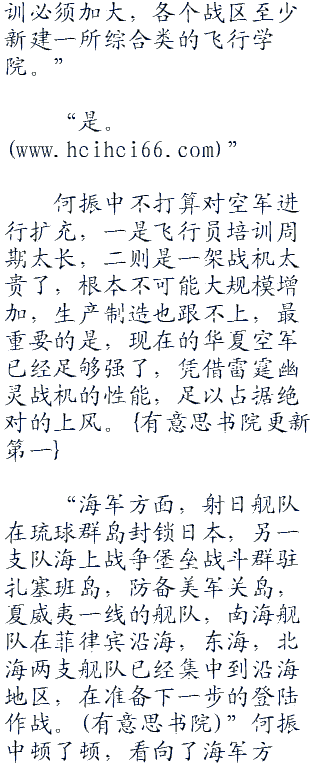 训必须加大，各个战区至少
新建一所综合类的飞行学
院。”
“是。
(www.hcihci66.com)”
何振中不打算对空军进
行扩充，一是飞行员培训周
期太长，二则是一架战机太
贵了，根本不可能大规模增
加，生产制造也跟不上，最
重要的是，现在的华夏空军
已经足够强了，凭借雷霆幽
灵战机的性能，足以占据绝
对的上风。{有意思书院更新
第一}
“海军方面，射日舰队
在琉球群岛封锁日本，另一
支队海上战争堡垒战斗群驻
扎塞班岛，防备美军关岛，
夏威夷一线的舰队，南海舰
队在菲律宾沿海，东海，北
海两支舰队已经集中到沿海
地区，在准备下一步的登陆
作战。(有意思书院)”何振
中顿了顿，看向了海军方